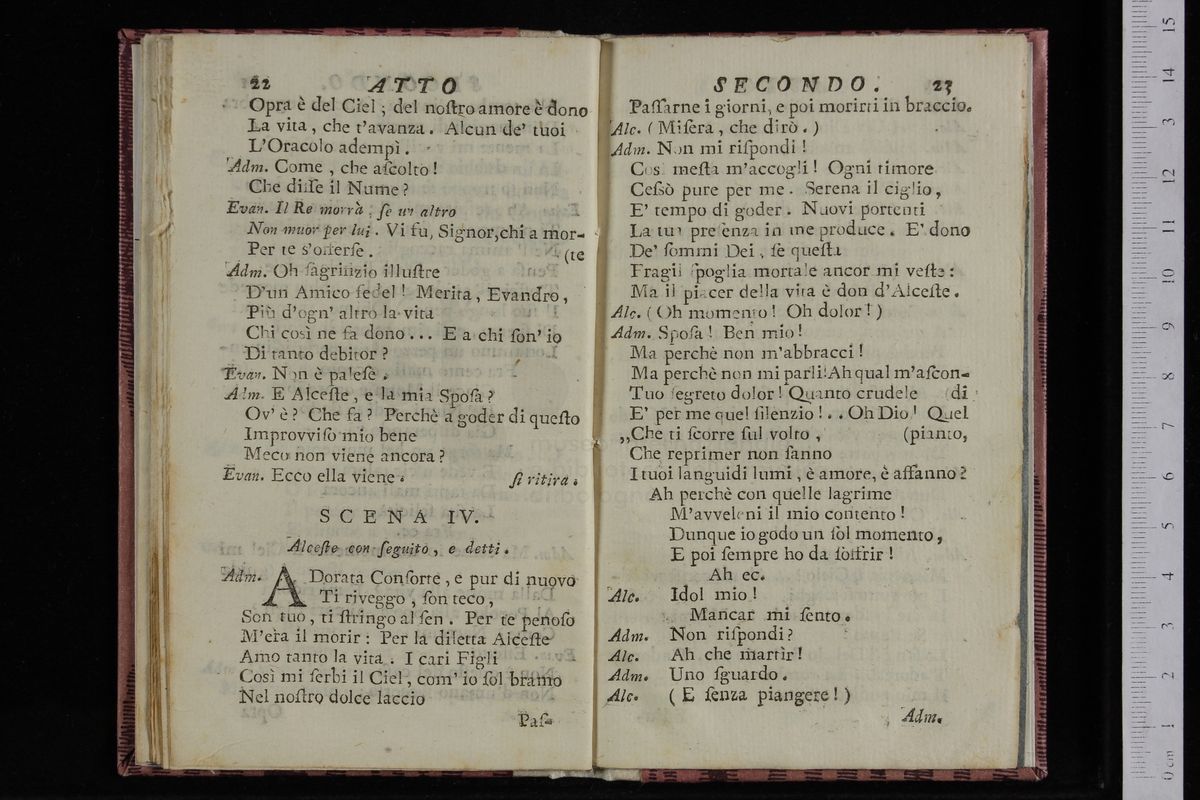 22 ATTO
Opra è del Ciel; del noſtro amore è dono
La vita, che t'avanza. Alcun de' tuoi
L'Oracolo adempì.
Adm. Come, che aſcolto!
Che diſſe il Nume?
Evan. Il Re morrà, ſe un altro
Non muor per lui. Vi fu, Signor, chi a mor-
Per te s'offerſe. (te
Adm. Oh ſagrifizio illuſtre
D'un Amico fedel! Merita, Evandro,
Più d'ogn' altro la vita
Chi così ne fa dono... E a chi ſon' io
Di tanto debitor?
Evan. Non è paleſe.
Adm. E Alceſte, e la mia Spoſa?
Ov' è? Che fa? Perchè a goder di queſto
Improvviſo mio bene
Meco non viene ancora?
Evan. Ecco ella viene. ſi ritira.
SCENA IV.
Alceſte con ſeguito, e detti.
Adm. ADorata Conſorte, e pur di nuovo
Ti riveggo, ſon teco,
Son tuo, ti ſtringo al ſen. Per te penoſo
M'era il morir: Per la diletta Alceſte
Amo tanto la vita. I cari Figli
Così mi ſerbi il Ciel, com' io ſol bramo
Nel noſtro dolce laccio
Paſ-
SECONDO. 23
Paſſarne i giorni, e poi morirti in braccio.
Alc. (Miſera, che dirò.)
Adm. Non mi riſpondi!
Così meſta m'accogli! Ogni timore
Ceſsò pure per me. Serena il ciglio,
E' tempo di goder. Nuovi portenti
La tua preſenza in me produce. E' dono
De' ſommi Dei, ſe queſta
Fragil ſpoglia mortale ancor mi veſte:
Ma il piacer della vita è don d'Alceſte.
Alc. (Oh momento! Oh dolor!)
Adm. Spoſa! Ben mio!
Ma perchè non m'abbracci!
Ma perchè non mi parli! Ah qual m'aſcon-
Tuo ſegreto dolor! Quanto crudele (di
E' per me quel ſilenzio!.. Oh Dio! Quel
,,Che ti ſcorre ſul volto, (pianto,
Che reprimer non ſanno
I tuoi languidi lumi, è amore, è affanno?
Ah perchè con quelle lagrime
M'avveleni il mio contento!
Dunque io godo un ſol momento,
E poi ſempre ho da ſoffrir!
Ah ec.
Alc. Idol mio!
Mancar mi ſento.
Adm. Non riſpondi?
Alc. Ah che martìr!
Adm. Uno ſguardo.
Alc. (E ſenza piangere!)
Adm.
0 cm 1 2 3 4 5 6 7 8 9 10 11 12 13 14 15